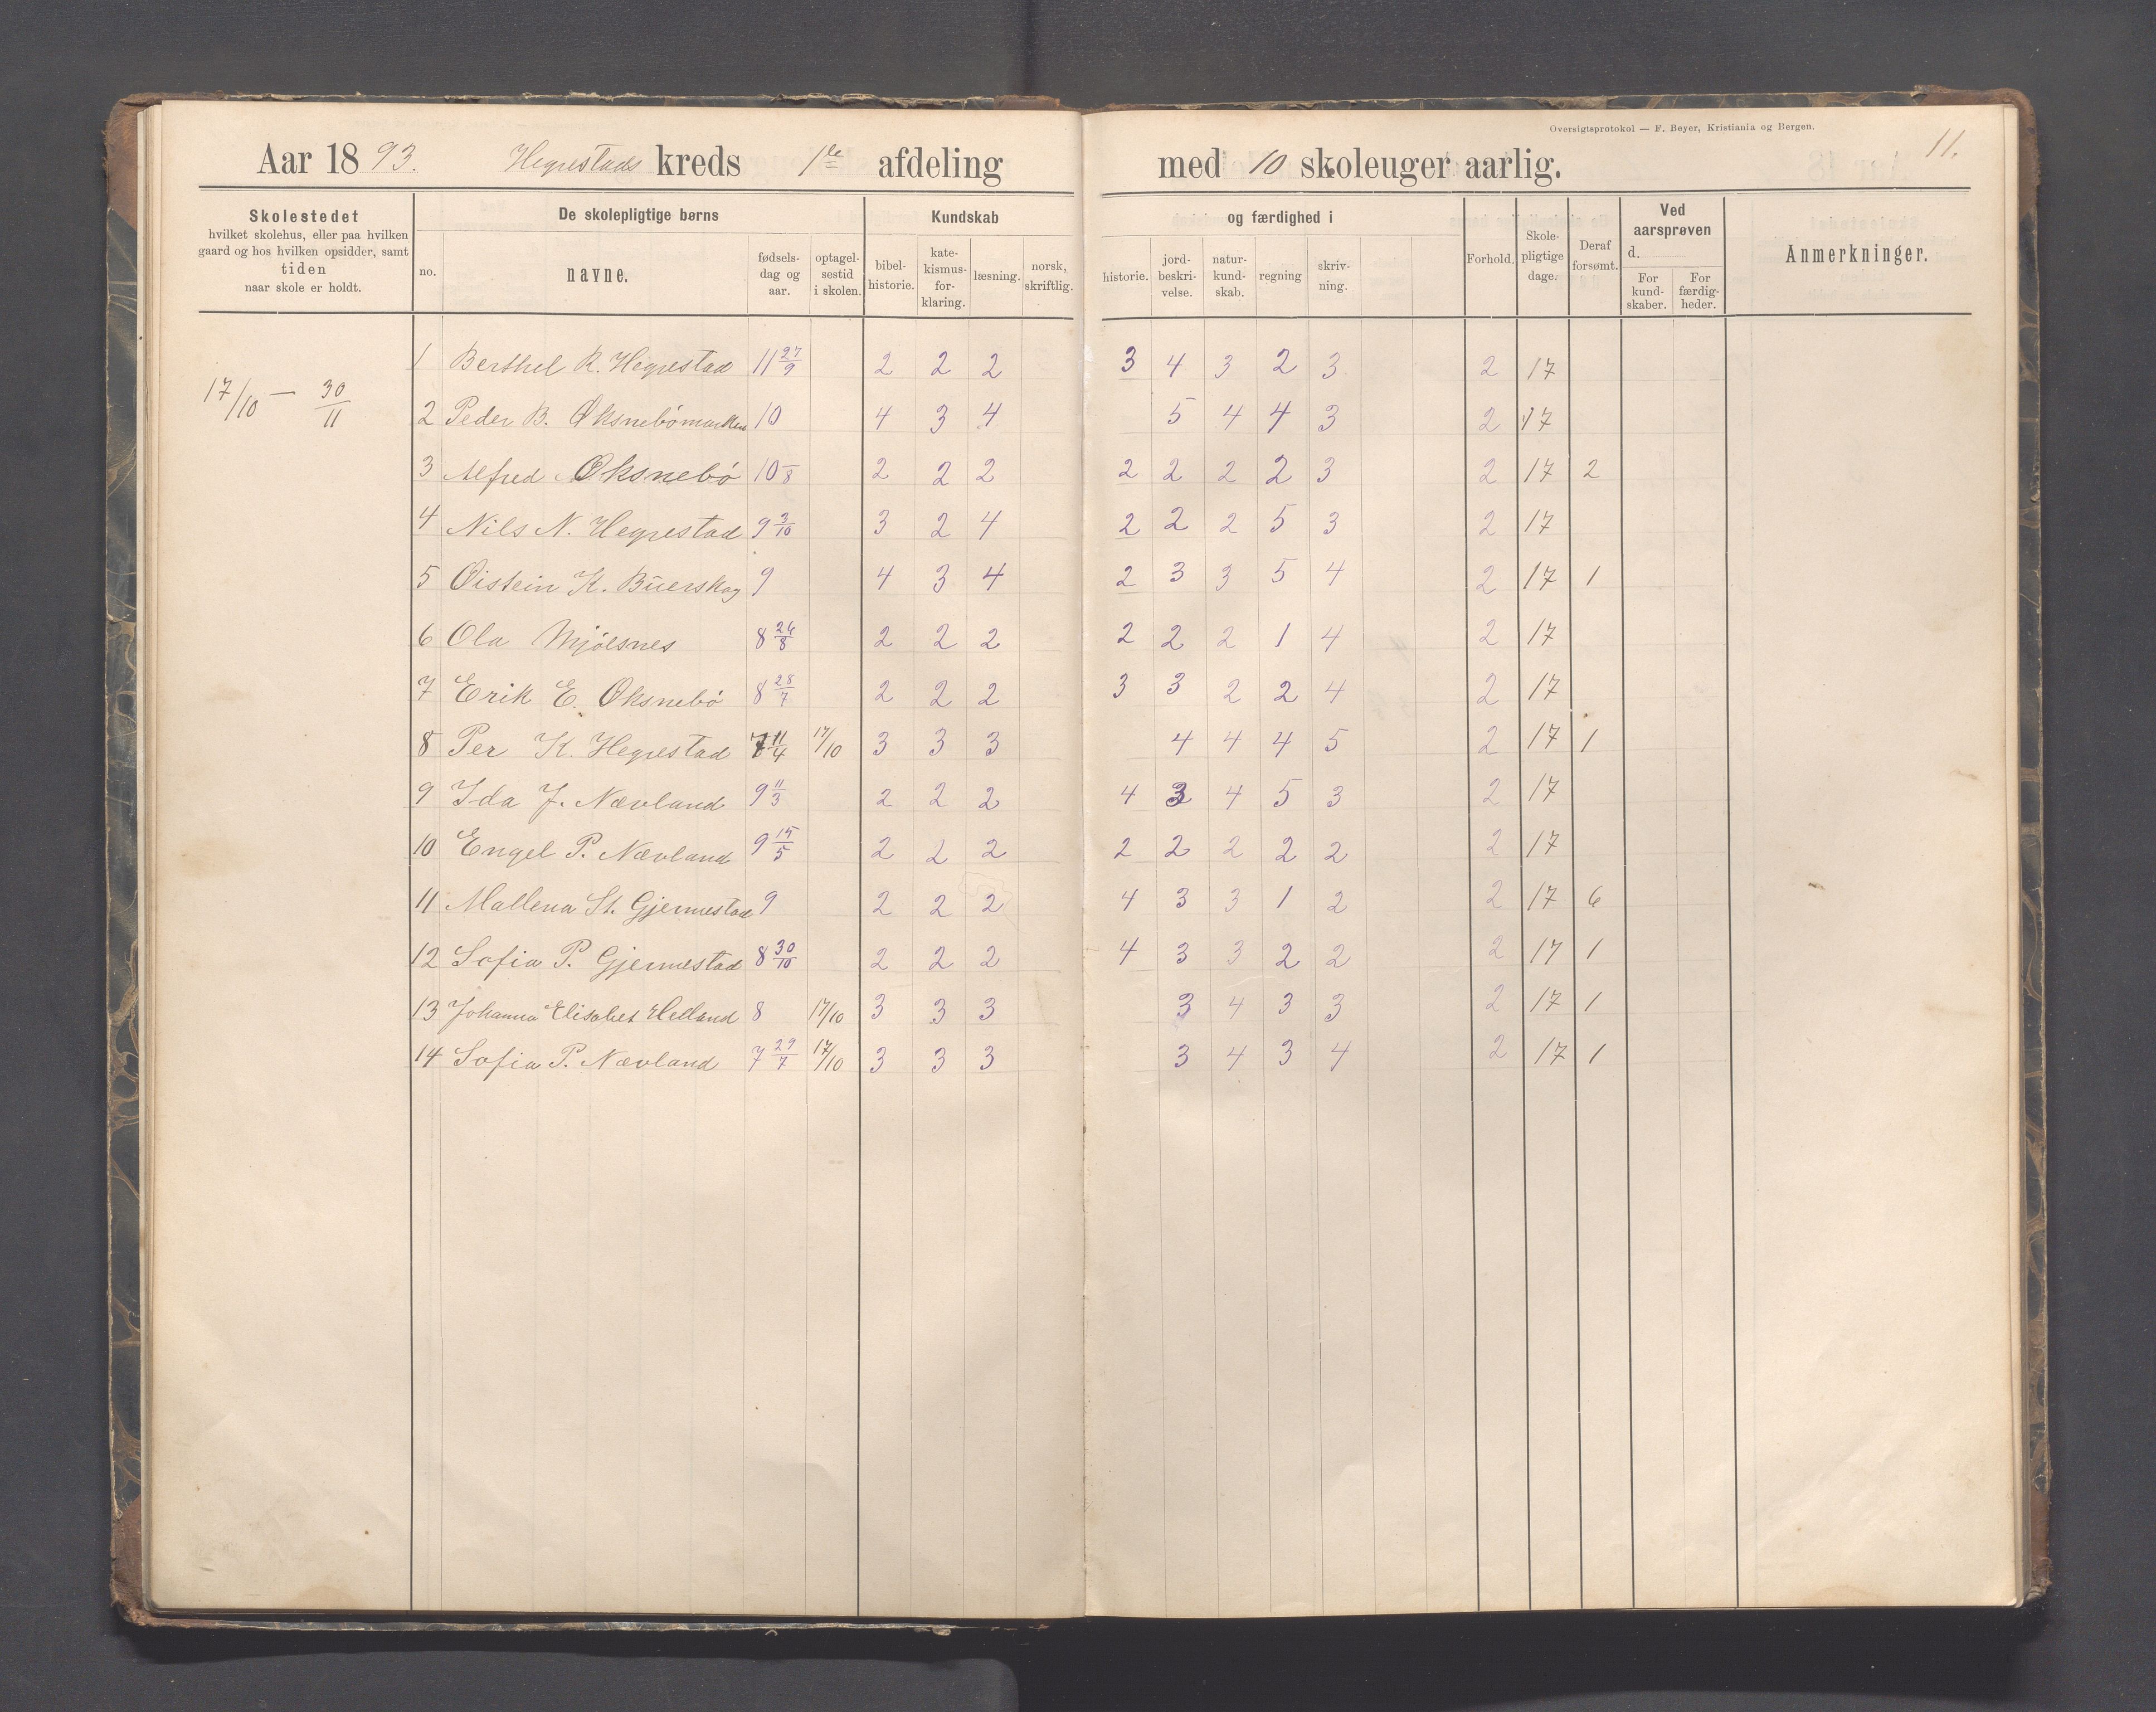 Oversigtsprotokol — F. Beyer, Kristiania og Bergen.
11.
Aar 1893. Hegrestads kreds 1ste afdeling med 10 skoleuger aarlig.
Skolestedet
hvilket skolehus, eller paa hvilken
gaard og hos hvilken opsidder, samt
tiden
naar skole er holdt.
De skolepligtige børns
no. navne. fødsels-dag og aar. optagel-sestid i skolen.
Kundskab og færdighed i
bibel-historie. kate-kismus-for-klaring. læsning. norsk, skriftlig. historie. jord-beskri-velse. natur-kund-skab. regning skriv-ning.
Forhold. Skole-pligtige dage. Deraf forsømt.
Ved aarsprøven d.
For kund-skaber. For færdig-heder.
Anmerkninger.
17/10 — 30/11
1 Berthel R. Hegrestad 11 27/9 2 2 2 3 4 3 2 3 2 17
2 Peder B. Øksnebømarken 10 4 3 4 5 4 4 3 2 17
3 Alfred Øksnebø 10 –/8 2 2 2 2 2 2 2 3 2 17 2
4 Nils N. Hegrestad 9 3/10 3 2 4 2 2 2 5 3 2 17
5 Øistein K. Buerskog 9 4 3 4 2 3 3 5 4 2 17 1
6 Ola Mjølsnes 8 26/8 2 2 2 2 2 2 1 4 2 17
7 Erik E. Øksnebø 8 28/7 2 2 2 3 3 2 2 4 2 17
8 Per K. Hegrestad 7 11/4 17/10 3 3 3 4 4 4 5 2 17 1
9 Ida J. Nævland 9 11/3 2 2 2 4 3 4 5 3 2 17
10 Engel P. Nævland 9 15/5 2 2 2 2 2 2 2 2 2 17
11 Mallena St. Gjermestad 9 2 2 2 4 3 3 1 2 2 17 6
12 Sofia P. Gjermestad 8 30/10 2 2 2 4 3 3 2 2 2 17 1
13 Johanna Elisabet Helland 8 17/10 3 3 3 3 4 3 3 2 17 1
14 Sofia P. Nævland 7 29/7 17/10 3 3 3 3 4 3 4 2 17 1